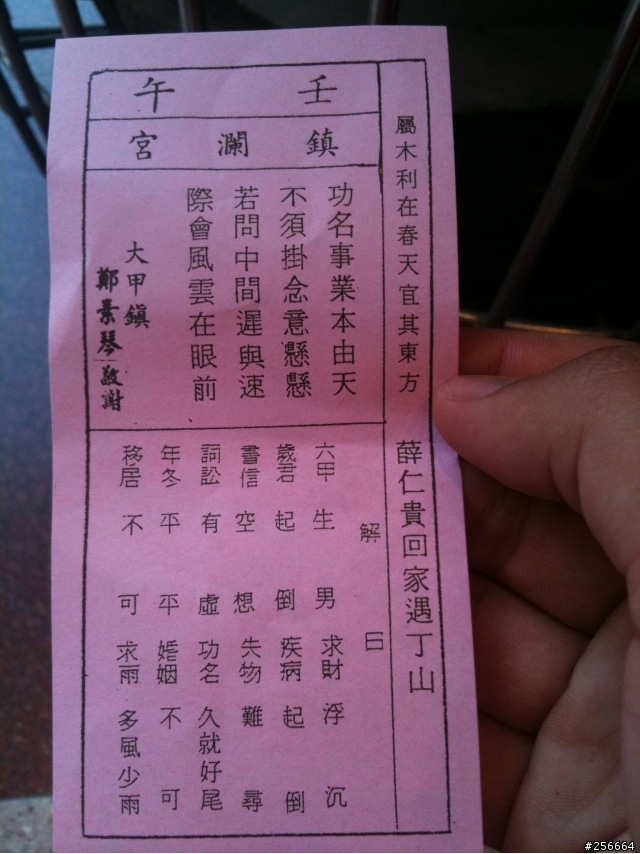 屬木利在春天宜其東方　薛仁貴回家遇丁山
壬午
鎮瀾宮
功名事業本由天
不須掛念意懸懸
若問中間遲與速
際會風雲在眼前
大甲鎮
鄭景琴敬謝
解曰
六甲生男 求財浮沉
歲君起倒 疾病起倒
書信空想 失物難尋
詞訟有虛 功名久就好尾
年冬平平 婚姻不可
移居不可 求雨多風少雨
#256664